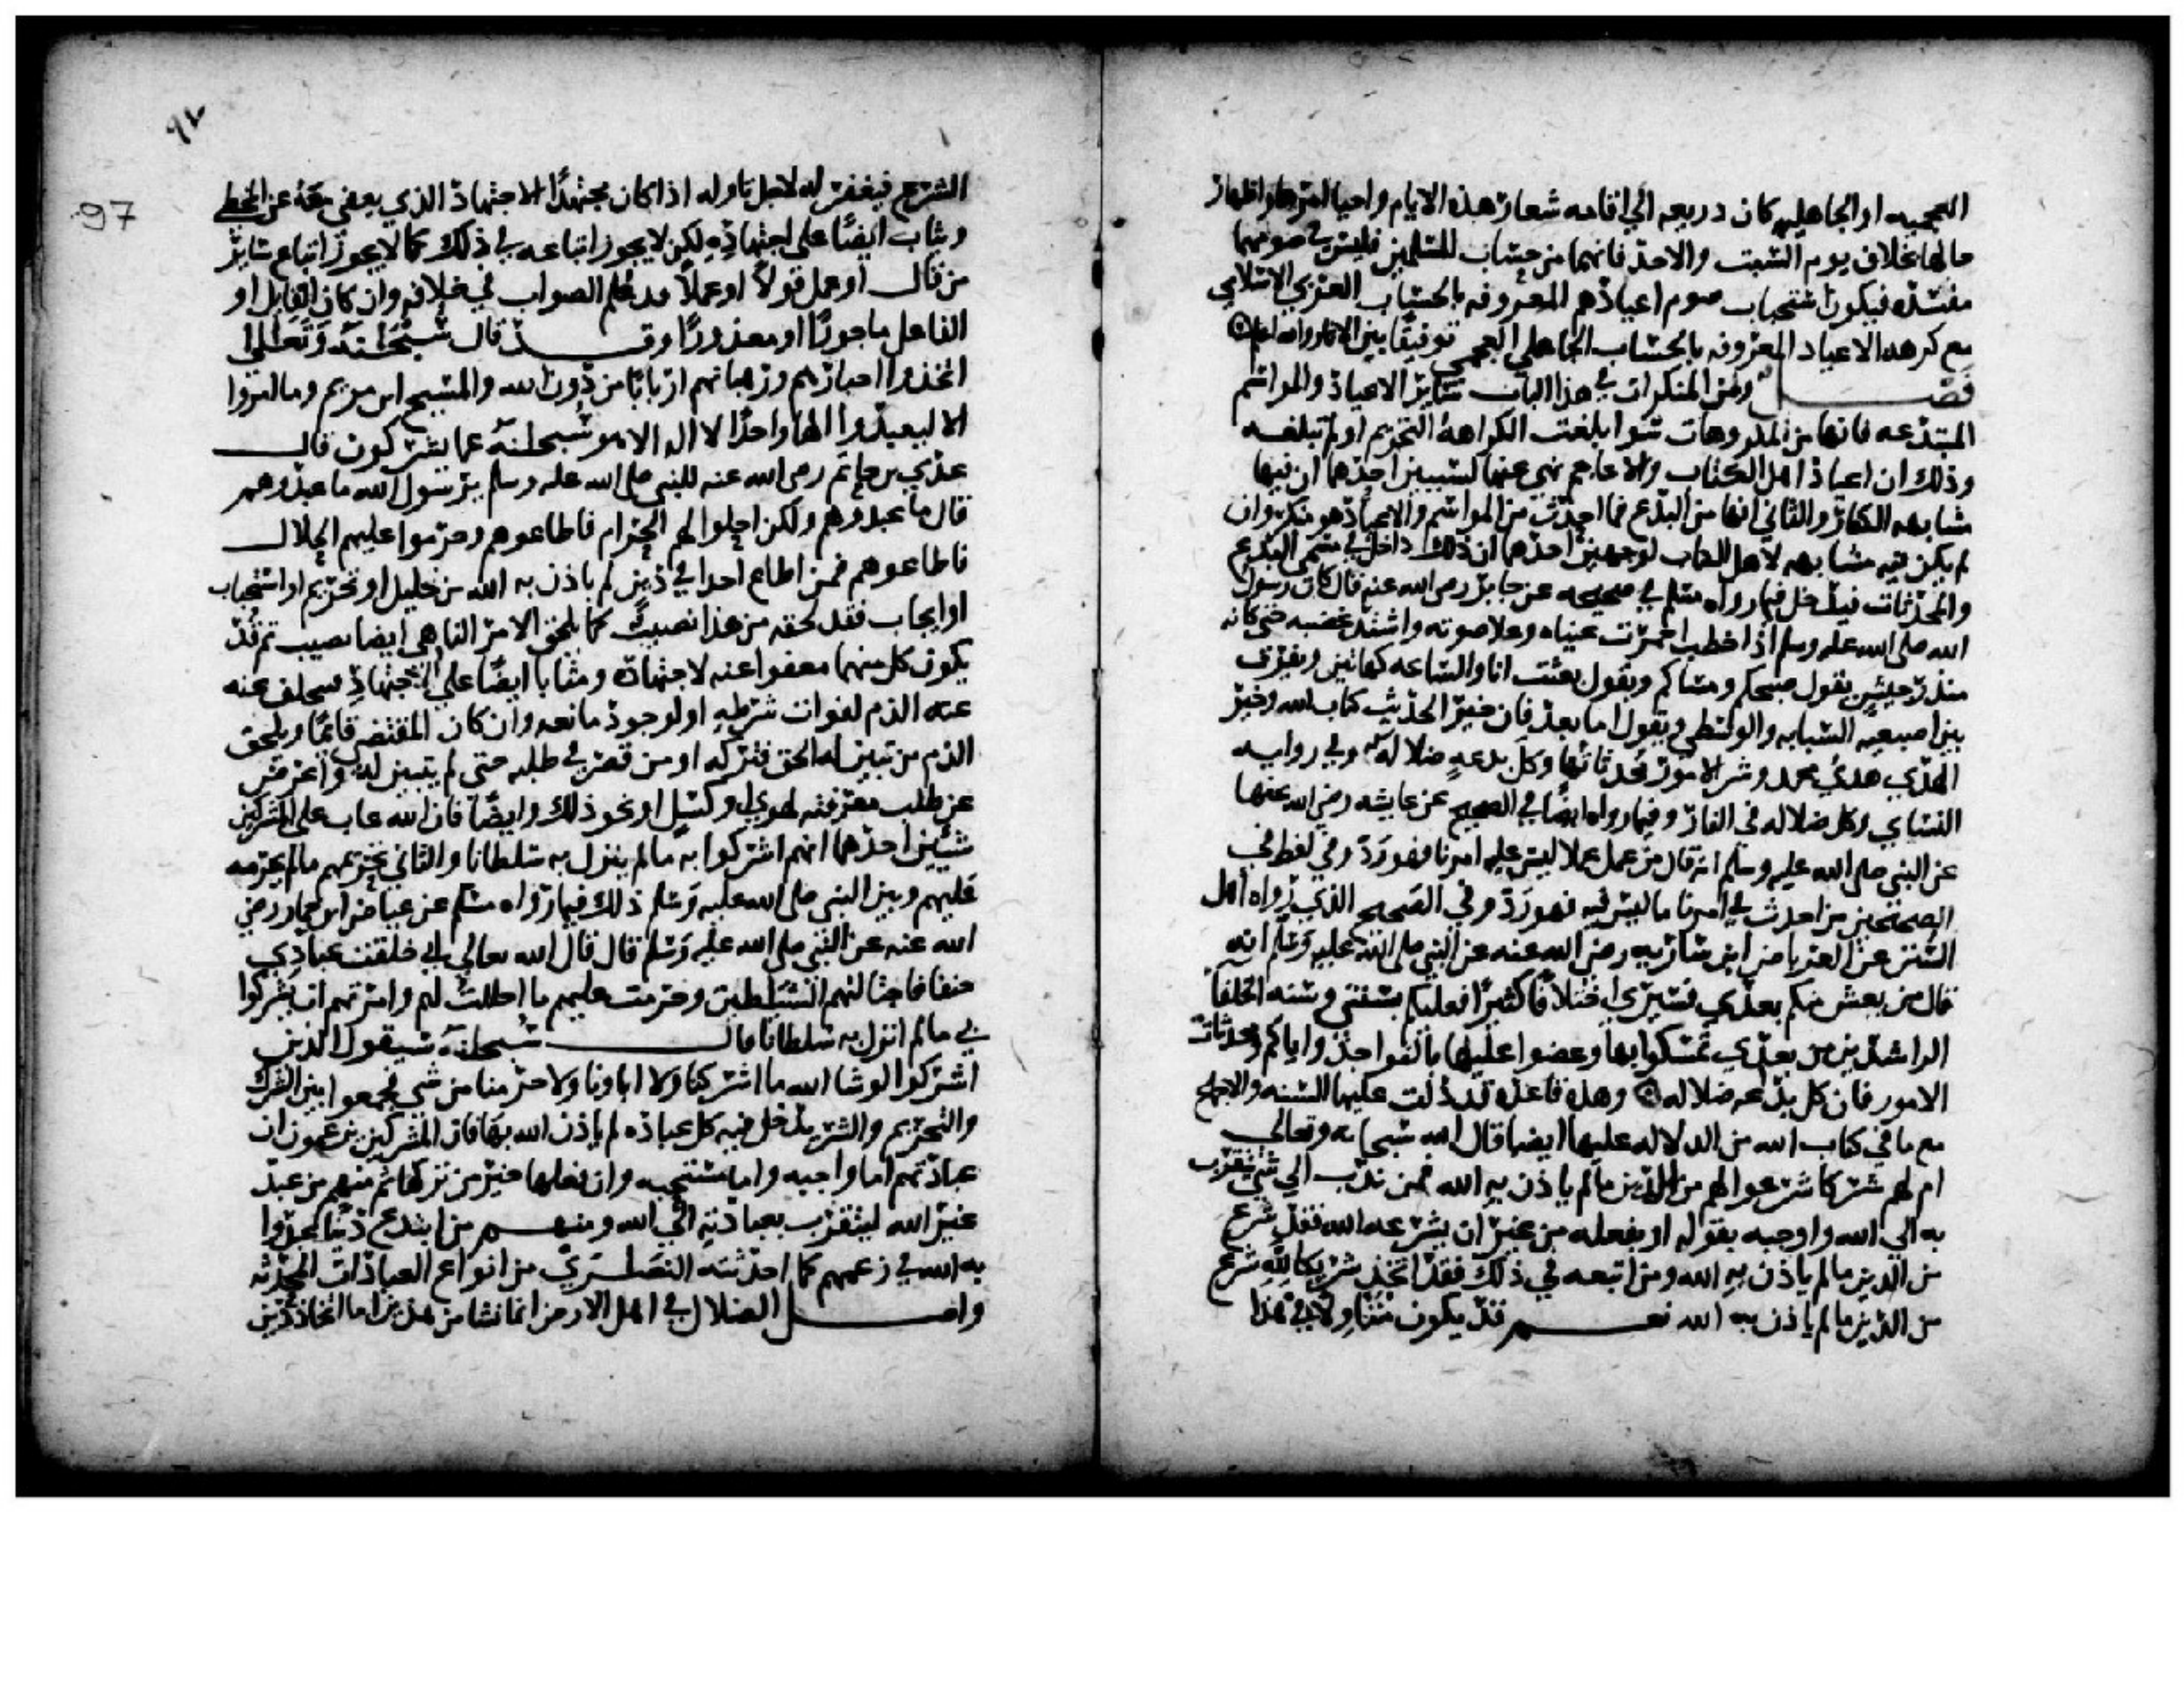 العجميه او الجاهليه كان ذريعه الي اقامه شعار هذه الايام واحيا امرها واظهار
حالها بخلاف يوم السبت والاحد فانهما من حساب المسلمين فليس في صومهما
مفسده فيكون استحباب صوم اعيادهم المعروفه بالحساب العربي الاسلامي
مع كرهه الاعياد المعروفه بالحساب الجاهلي العجمي توفيقا بين الاثار والله اعلم
فصل ومن المنكرات في هذا الباب سائر الاعياد والمواسم
المبتدعه فانها من المكروهات سوا بلغت الكراهه التحريم او لم تبلغه
وذلك ان اعياد اهل الكتاب والاعاجم نهي عنها لسببين احدهما ان فيها
مشابهه الكفار والثاني انها من البدع فما احدث من المواسم والاعياد هو منكر وان
لم يكن فيه مشابهه لاهل الكتاب لوجهين احدهما ان ذلك داخل في مسمي البدع
والمحدثات فيدخل فيما رواه مسلم في صحيحه عن جابر رضي الله عنه قال كان رسول
الله صلي الله عليه وسلم اذا خطب احمرت عيناه وعلا صوته واشتد غضبه حتي كانه
منذر جيش يقول صبحكم ومساكم ويقول بعثت انا والساعه كهاتين ويفرق
بين اصبعيه السبابه والوسطي ويقول اما بعد فان خير الحديث كتاب الله وخير
الهدي هدي محمد وشر الامور محدثاتها وكل بدعه ضلاله وفي روايه
النساي وكل ضلاله في النار وفيما رواه ايضا في الصحيح عن عايشه رضي الله عنها
عن النبي صلي الله عليه وسلم انه قال من عمل عملا ليس عليه امرنا فهو رد وفي لفظ في
الصحيحين من احدث في امرنا ما ليس فيه فهو رد وفي الصحيح الذي رواه اهل
السنن عن العرباض ابن ساريه رضي الله عنه عن النبي صلي الله عليه وسلم انه
قال من يعش منكم بعدي فسيري اختلافا كثيرا فعليكم بسنتي وسنه الخلفا
الراشدين من بعدي تمسكوا بها وعضوا عليها بالنواجذ واياكم ومحدثات
الامور فان كل بدعه ضلاله وهذه قاعده قد دلت عليها السنه والاجماع
مع ما في كتاب الله من الدلاله عليها ايضا قال الله سبحانه وتعالي
ام لهم شركا شرعوا لهم من الدين ما لم ياذن به الله فمن ندب الي شي يتقرب
به الي الله واوجبه بقوله او بفعله من غير ان يشرعه الله فقد شرع
من الدين ما لم ياذن به الله ومن اتبعه في ذلك فقد اتخذ شريكا لله شرع
من الدين ما لم ياذن به الله نعم قد يكون متاولا في هذا
97
الشرع فيغفر له لاجل تاوله اذا كان مجتهدا الاجتهاد الذي يعفي معه عن المخطي
ويثاب ايضا علي اجتهاده لكن لا يجوز اتباعه في ذلك كما لا يجوز اتباع سائر
من قال او عمل قولا او عملا قد علم الصواب في خلافه وان كان القايل او
الفاعل ماجورا او معذورا وقد قال سبحنه وتعالي
اتخذوا احبارهم ورهبانهم اربابا من دون الله والمسيح ابن مريم وما امروا
الا ليعبدوا الها واحدا لا اله الا هو سبحانه عما يشركون قال
عدي بن حاتم رضي الله عنه للنبي صلي الله عليه وسلم يرسول الله ما عبدوهم
قال ما عبدوهم ولكن احلوا لهم الحرام فاطاعوهم وحرموا عليهم الحلال
فاطاعوهم فمن اطاع احدا في دين لم ياذن به الله من تحليل او تحريم او استحباب
او ايجاب فقد لحقه من هذا نصيب كما يلحق الامر الناهي ايضا نصيب ثم قد
يكون كل منهما معفوا عنه لاجتهاده ومثابا ايضا علي الاجتهاد فيتخلف عنه
عنه الذم لفوات شرطه او لوجود مانعه وان كان المقتضي قائما ويلحق
الذم من تبين له الحق فتركه او من قصر في طلبه حتي لم يتبين له او اعرض
عن طلب معرفته لهوي او كسل او نحو ذلك وايضا فان الله عاب علي المشركين
شيئين احدهما انهم اشركوا به ما لم ينزل به سلطانا والثاني تحريمهم ما لم يحرمه
عليهم وبين النبي صلي الله عليه وسلم ذلك فيما رواه مسلم عن عياض ابن حمار رضي
الله عنه عن النبي صلي الله عليه وسلم قال قال الله تعالي اني خلقت عبادي
حنفا فاجتالتهم الشيطين وحرمت عليهم ما احللت لهم وامرتهم ان يشركوا
بي ما لم انزل به سلطانا قال سبحنه سيقول الذين
اشركوا لو شا الله ما اشركنا ولا اباونا ولا حرمنا من شي فجمعوا بين الشرك
والتحريم والشرك يدخل فيه كل عباده لم ياذن الله بها فان المشركين يزعمون ان
عبادتهم اما واجبه واما مستحبه وان فعلها خير من تركها ثم منهم من عبد
غير الله ليتقرب بعبادته الي الله ومنهم من ابتدع دينا عبدوا
به الله في زعمهم كما احدثته النصري من انواع العبادات المحدثه
واصل الضلال في اهل الارض انما نشا من هذين اما اتخاذ دين